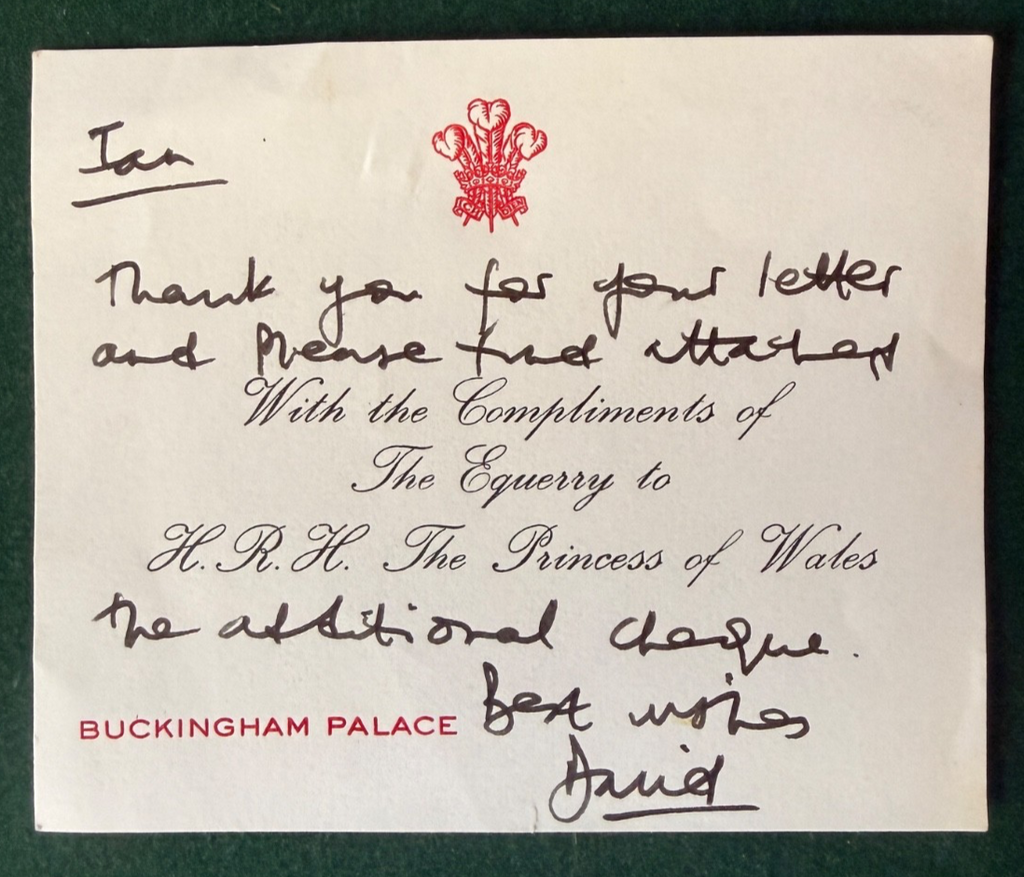 Ian
Thank you for your letter
and Please find attached
With the Compliments of
The Equerry to
H.R.H. The Princess of Wales
the additional cheque.
Best wishes
BUCKINGHAM PALACE
David